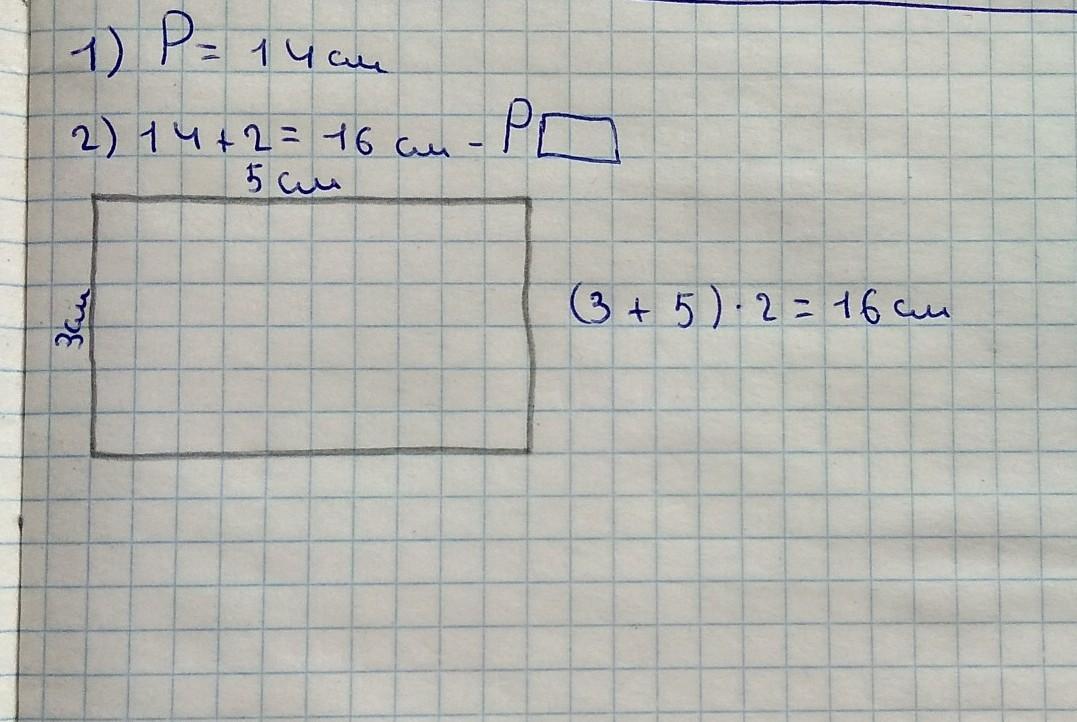 1) P = 14 см
2) 14 + 2 = 16 см - P
5 см
3см
(3 + 5) · 2 = 16 см